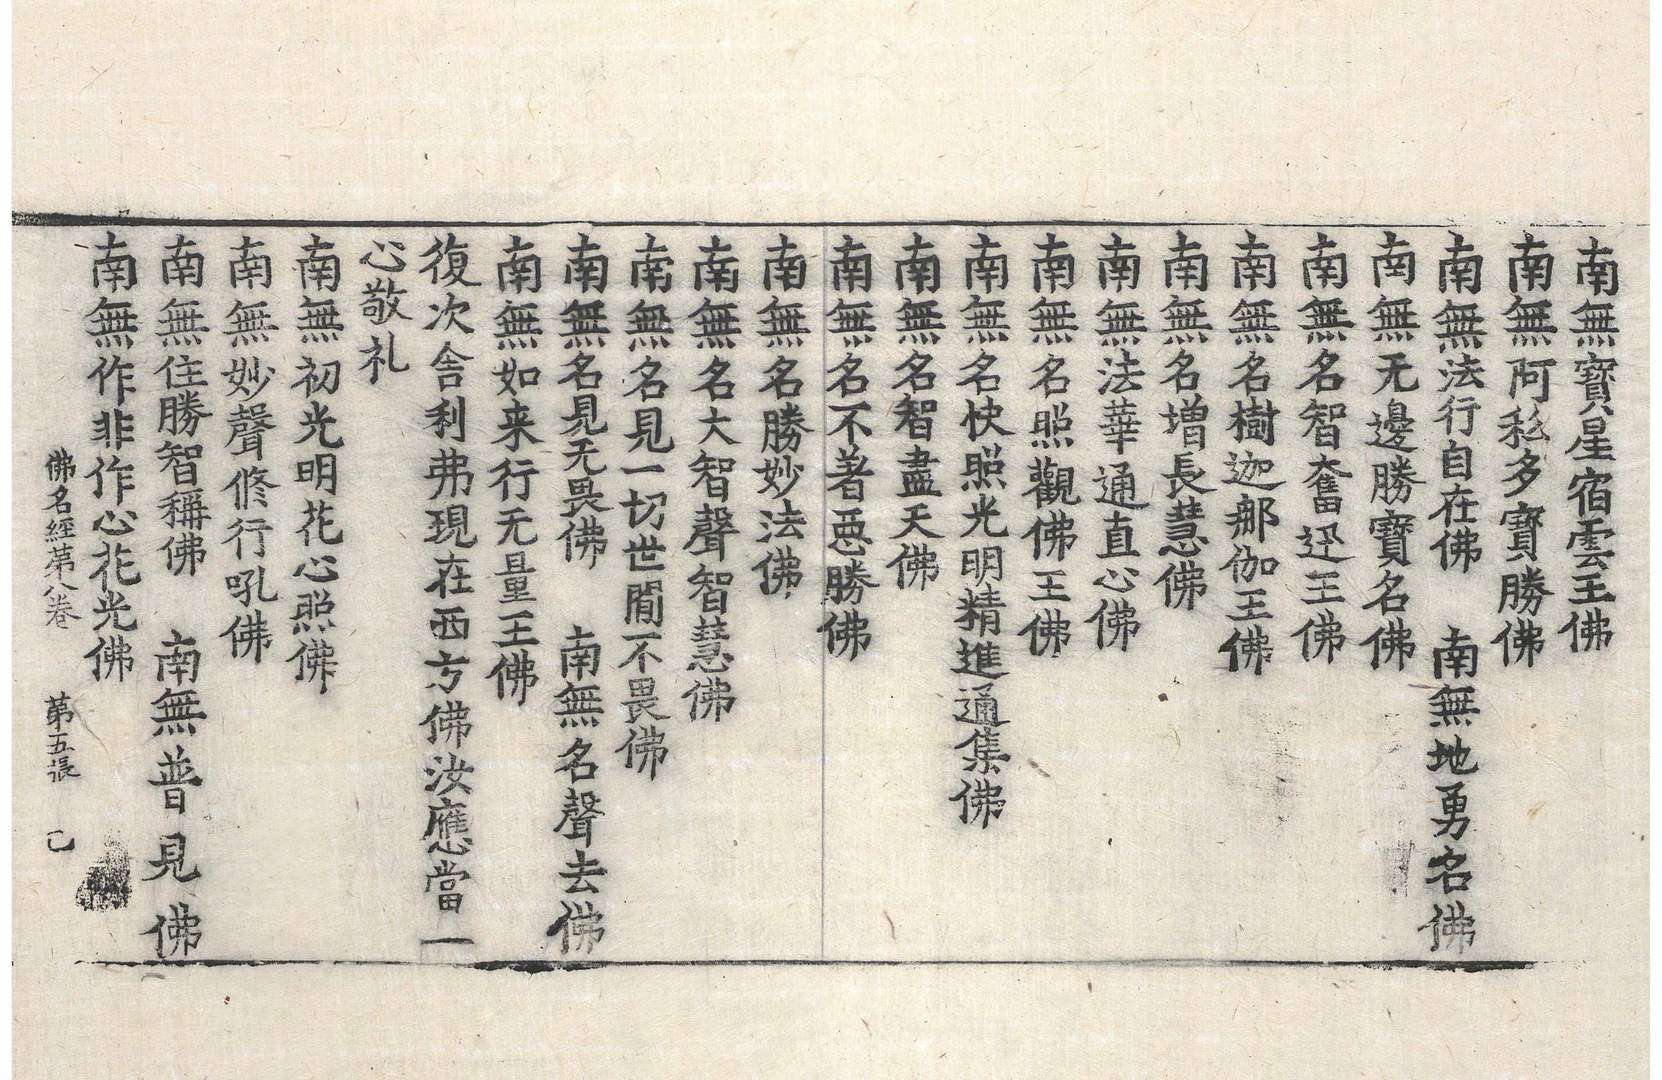 南無寶星宿雲王佛
南無阿弥多寶勝佛
南無法行自在佛　南無地勇名佛
南無无邊勝寶名佛
南無名智奮迅王佛
南無名樹迦那伽王佛
南無名增長慧佛
南無法華通直心佛
南無名照觀佛王佛
南無名快照光明精進通集佛
南無名智盡天佛
南無名不著惡勝佛
南無名勝妙法佛
南無名大智聲智慧佛
南無名見一切世間不畏佛
南無名見无畏佛　南無名聲去佛
南無如来行无量王佛
復次舍利弗現在西方佛汝應當一
心敬礼
南無初光明花心照佛
南無妙聲修行吼佛
南無住勝智稱佛　南無普見佛
南無作非作心花光佛
佛名經第八卷　第五張　己